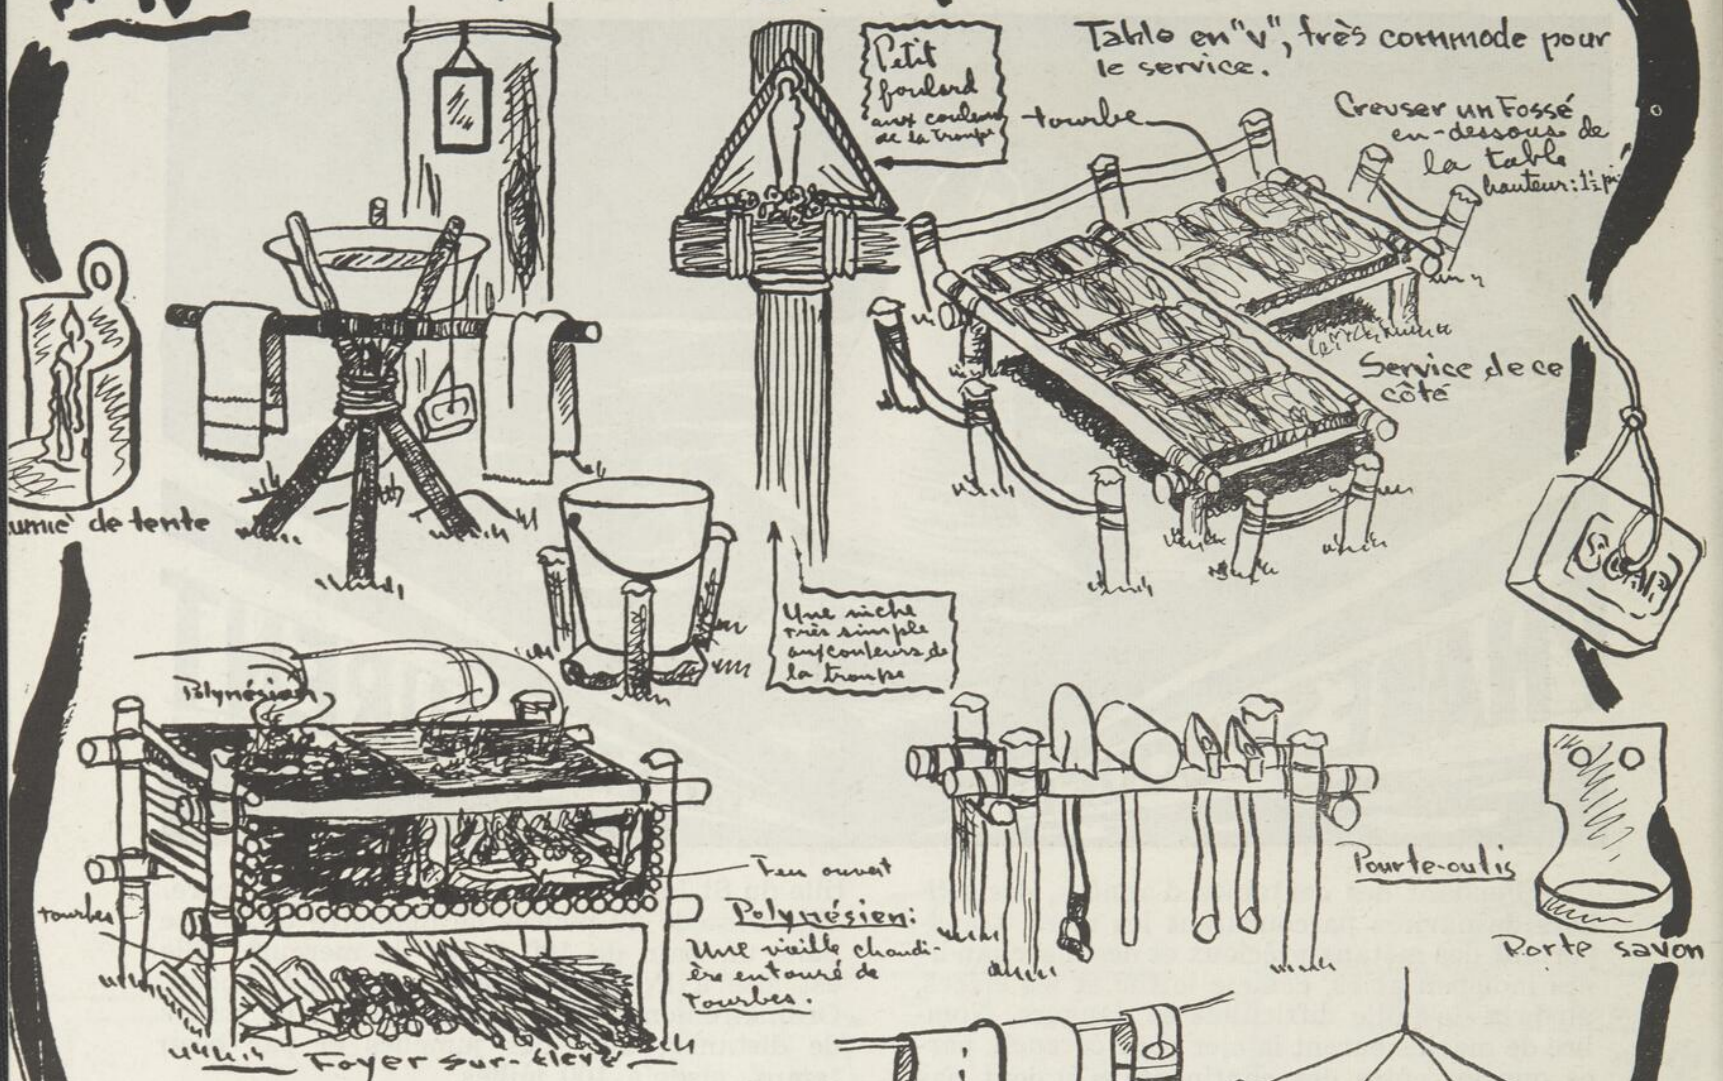 Petit
foulard
aux couleurs
de la Troupe
Table en "V", très commode pour
le service.
tourbe
Creuser un Fossé
en-dessous de
la table
hauteur: 1½ pi
Service de ce
côté
de tente
Une niche
très simple
aux couleurs de
la troupe
SOAP
Polynésien
Feu ouvert
tourbes
Polynésien:
Une vieille chaudi-
ère entouré de
tourbes.
Foyer sur-élevé
Pourte-outis
Porte savon